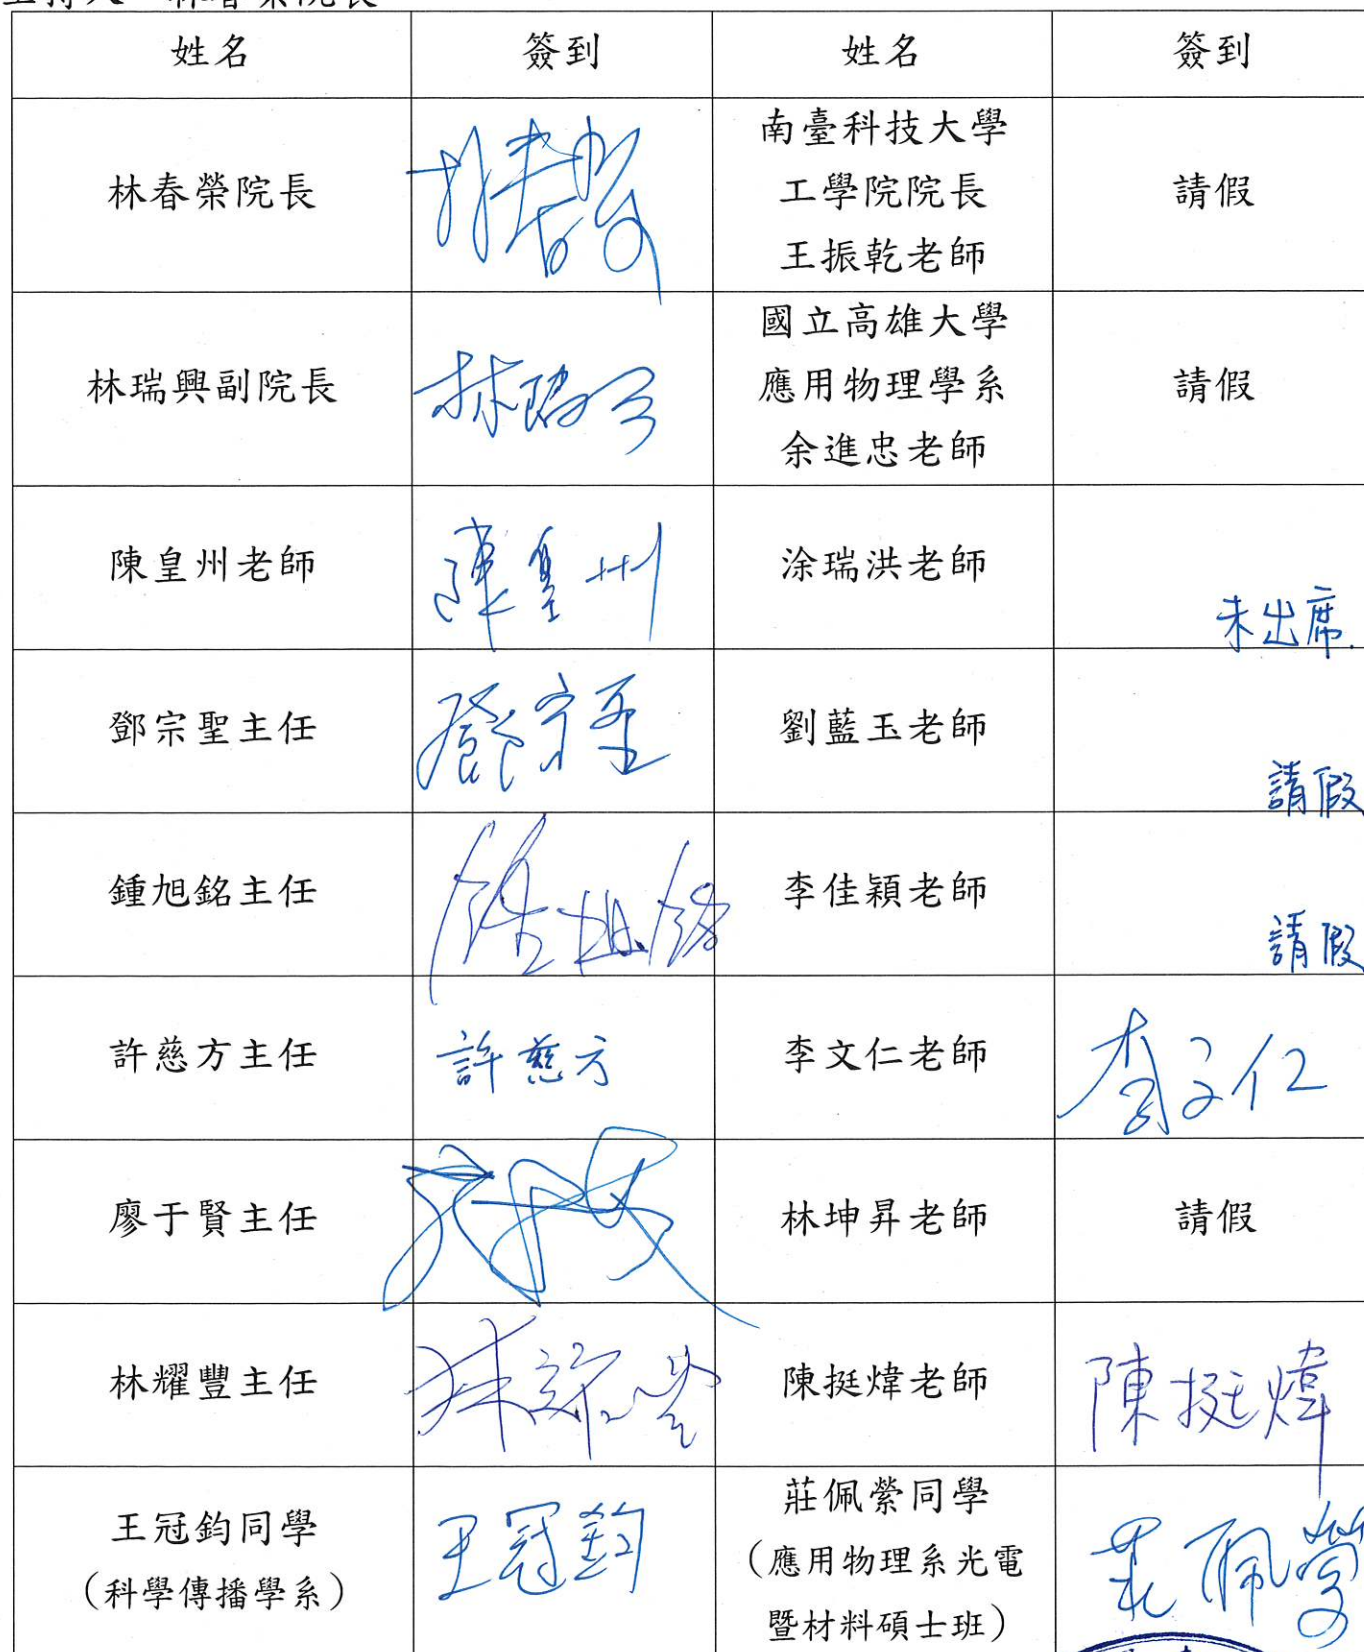 主持人：林春榮院長
姓名 簽到 姓名 簽到
林春榮院長 林春榮 南臺科技大學
工學院院長
王振乾老師 請假
林瑞興副院長 林瑞興 國立高雄大學
應用物理學系
余進忠老師 請假
陳皇州老師 陳皇州 涂瑞洪老師 未出席.
鄧宗聖主任 鄧宗聖 劉藍玉老師 請假
鍾旭銘主任 鍾旭銘 李佳穎老師 請假
許慈方主任 許慈方 李文仁老師 李文仁
廖于賢主任 林坤昇老師 請假
林耀豐主任 林耀豐 陳挺煒老師 陳挺煒
王冠鈞同學
（科學傳播學系） 王冠鈞 莊佩縈同學
（應用物理系光電
暨材料碩士班） 莊佩縈